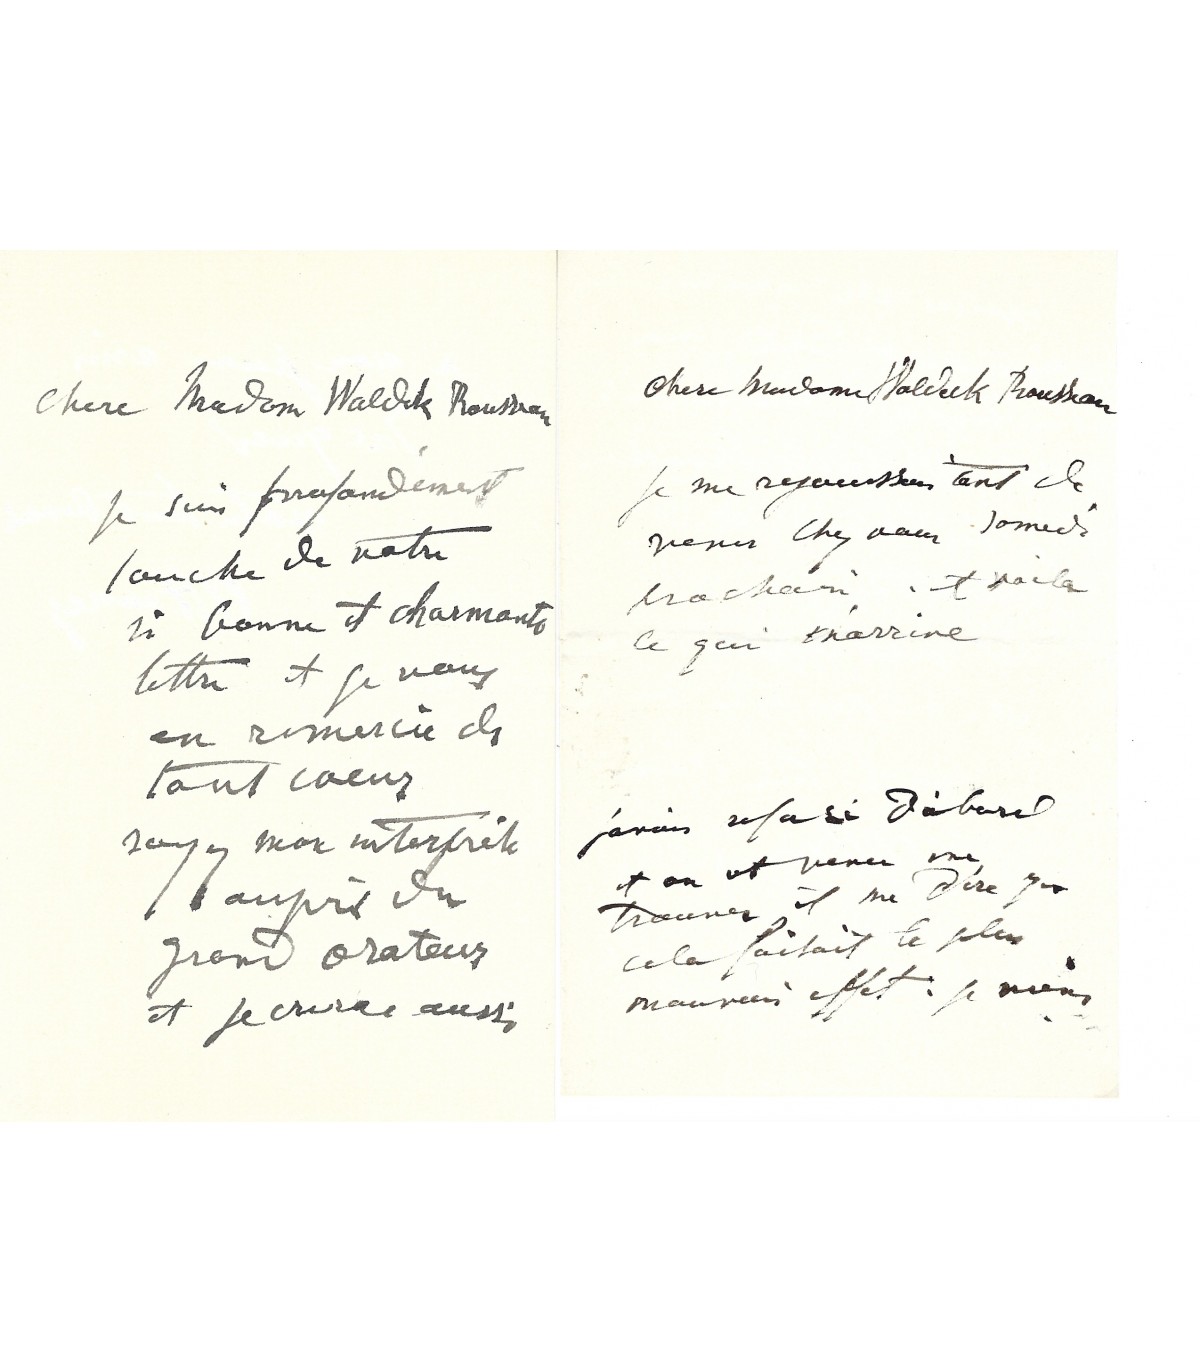 Chere Madame Waldek Rousseau
je suis profondément
touche de votre
si bonne et charmante
lettre et je vous
en remercie de
tout coeur
soyez mon interprète
auprès du
grand orateur
et je aussi
Chere Madame Waldeck Rousseau
je me rejouissais tant de
venir chez vous samedi
prochain. et voila
ce qui m'arrive
j'avais refusé d'abord
et on est venu me
trouver et me dire que
cela faisait le plus
mauvais effet. je viens